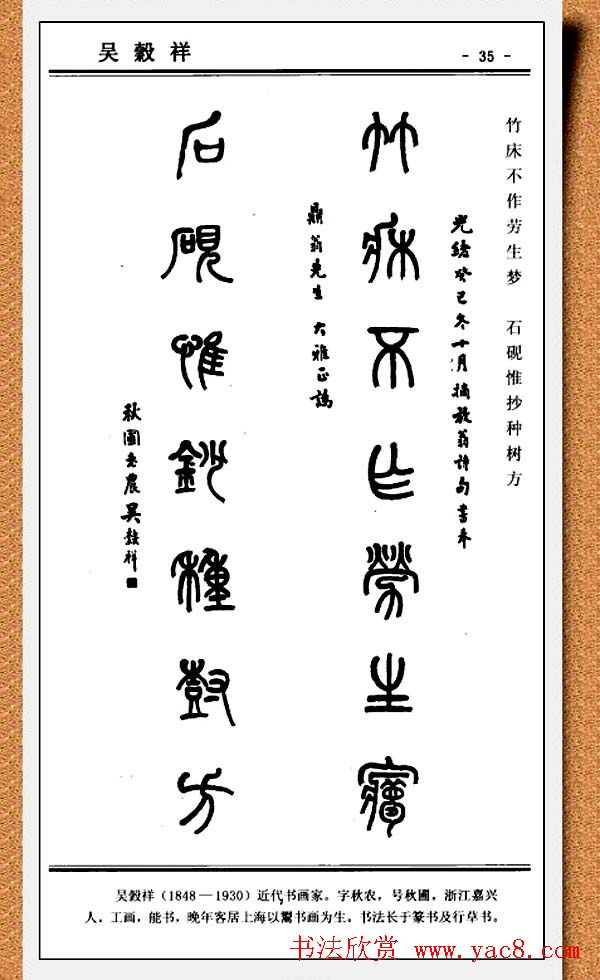 吴榖祥 - 35 -
竹床不作劳生梦 石砚惟抄种树方
光緒癸巳冬十月摘放翁詩句書奉
竹牀不乍勞生夢
鼎翁先生 大雅正譌
石硯惟鈔種尌方
秋圃老農吳榖祥
吴榖祥（1848－1930）近代书画家。字秋农，号秋圃。浙江嘉兴
人。工画，能书，晚年客居上海以鬻书画为生。书法长于篆书及行草书。
书法欣赏 www.yac8.com